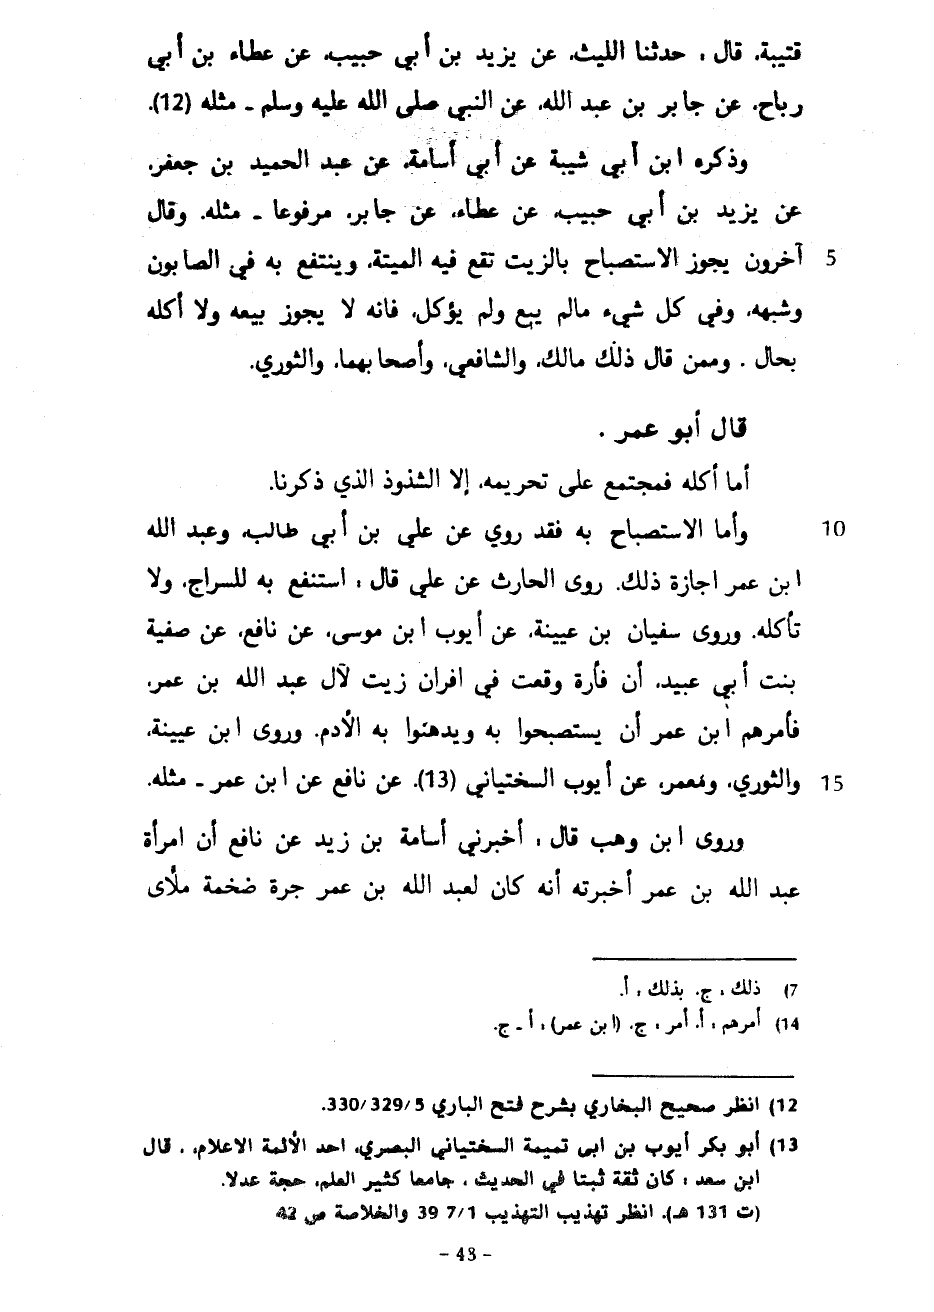 قتيبة، قال ، حدثنا الليث، عن يزيد بن أبي حبيب، عن عطاء بن أبي
رباح، عن جابر بن عبد الله، عن النبي صلى الله عليه وسلم ـ مثله (12).
وذكره ابن أبي شيبة عن أبي أسامة، عن عبد الحميد بن جعفر،
عن يزيد بن أبي حبيب، عن عطاء، عن جابر، مرفوعا ـ مثله، وقال
5 آخرون يجوز الاستصباح بالزيت تقع فيه الميتة، وينتفع به في الصابون
وشبهه، وفي كل شيء مالم يبع ولم يؤكل، فانه لا يجوز بيعه ولا أكله
بحال . وممن قال ذلك مالك، والشافعي، وأصحابهما، والثوري.
قال أبو عمر .
أما أكله فمجتمع على تحريمه، إلا الشذوذ الذي ذكرنا.
10 وأما الاستصباح به فقد روي عن علي بن أبي طالب، وعبد الله
ابن عمر اجازة ذلك. روى الحارث عن علي قال ، استنفع به للسراج، ولا
تأكله. وروى سفيان بن عيينة، عن أيوب ابن موسى، عن نافع، عن صفية
بنت أبي عبيد، أن فأرة وقعت في افران زيت لآل عبد الله بن عمر،
فأمرهم أبن عمر أن يستصبحوا به ويدهنوا به الأدم. وروى ابن عيينة،
15 والثوري، ومعمر، عن أيوب السختياني (13). عن نافع عن ابن عمر ـ مثله.
وروى ابن وهب قال ، أخبرني أسامة بن زيد عن نافع أن امرأة
عبد الله بن عمر أخبرته أنه كان لعبد الله بن عمر جرة ضخمة ملأى
7) ذلك ، ج. بذلك ، أ.
14) أمرهم ، أ. أمر ، ج. (ابن عمر) ، أ ـ ج.
12) انظر صحيح البخاري بشرح فتح الباري 5/329/330.
13) أبو بكر أيوب بن ابى تميمة السختياني البصري، احد الأئمة الاعلام، . قال
ابن سعد ، كان ثقة ثبتا في الحديث ، جامعا كثير العلم، حجة عدلا.
(ت 131 هـ). انظر تهذيب التهذيب 7/1 39 والخلاصة ص 42
- 48 -